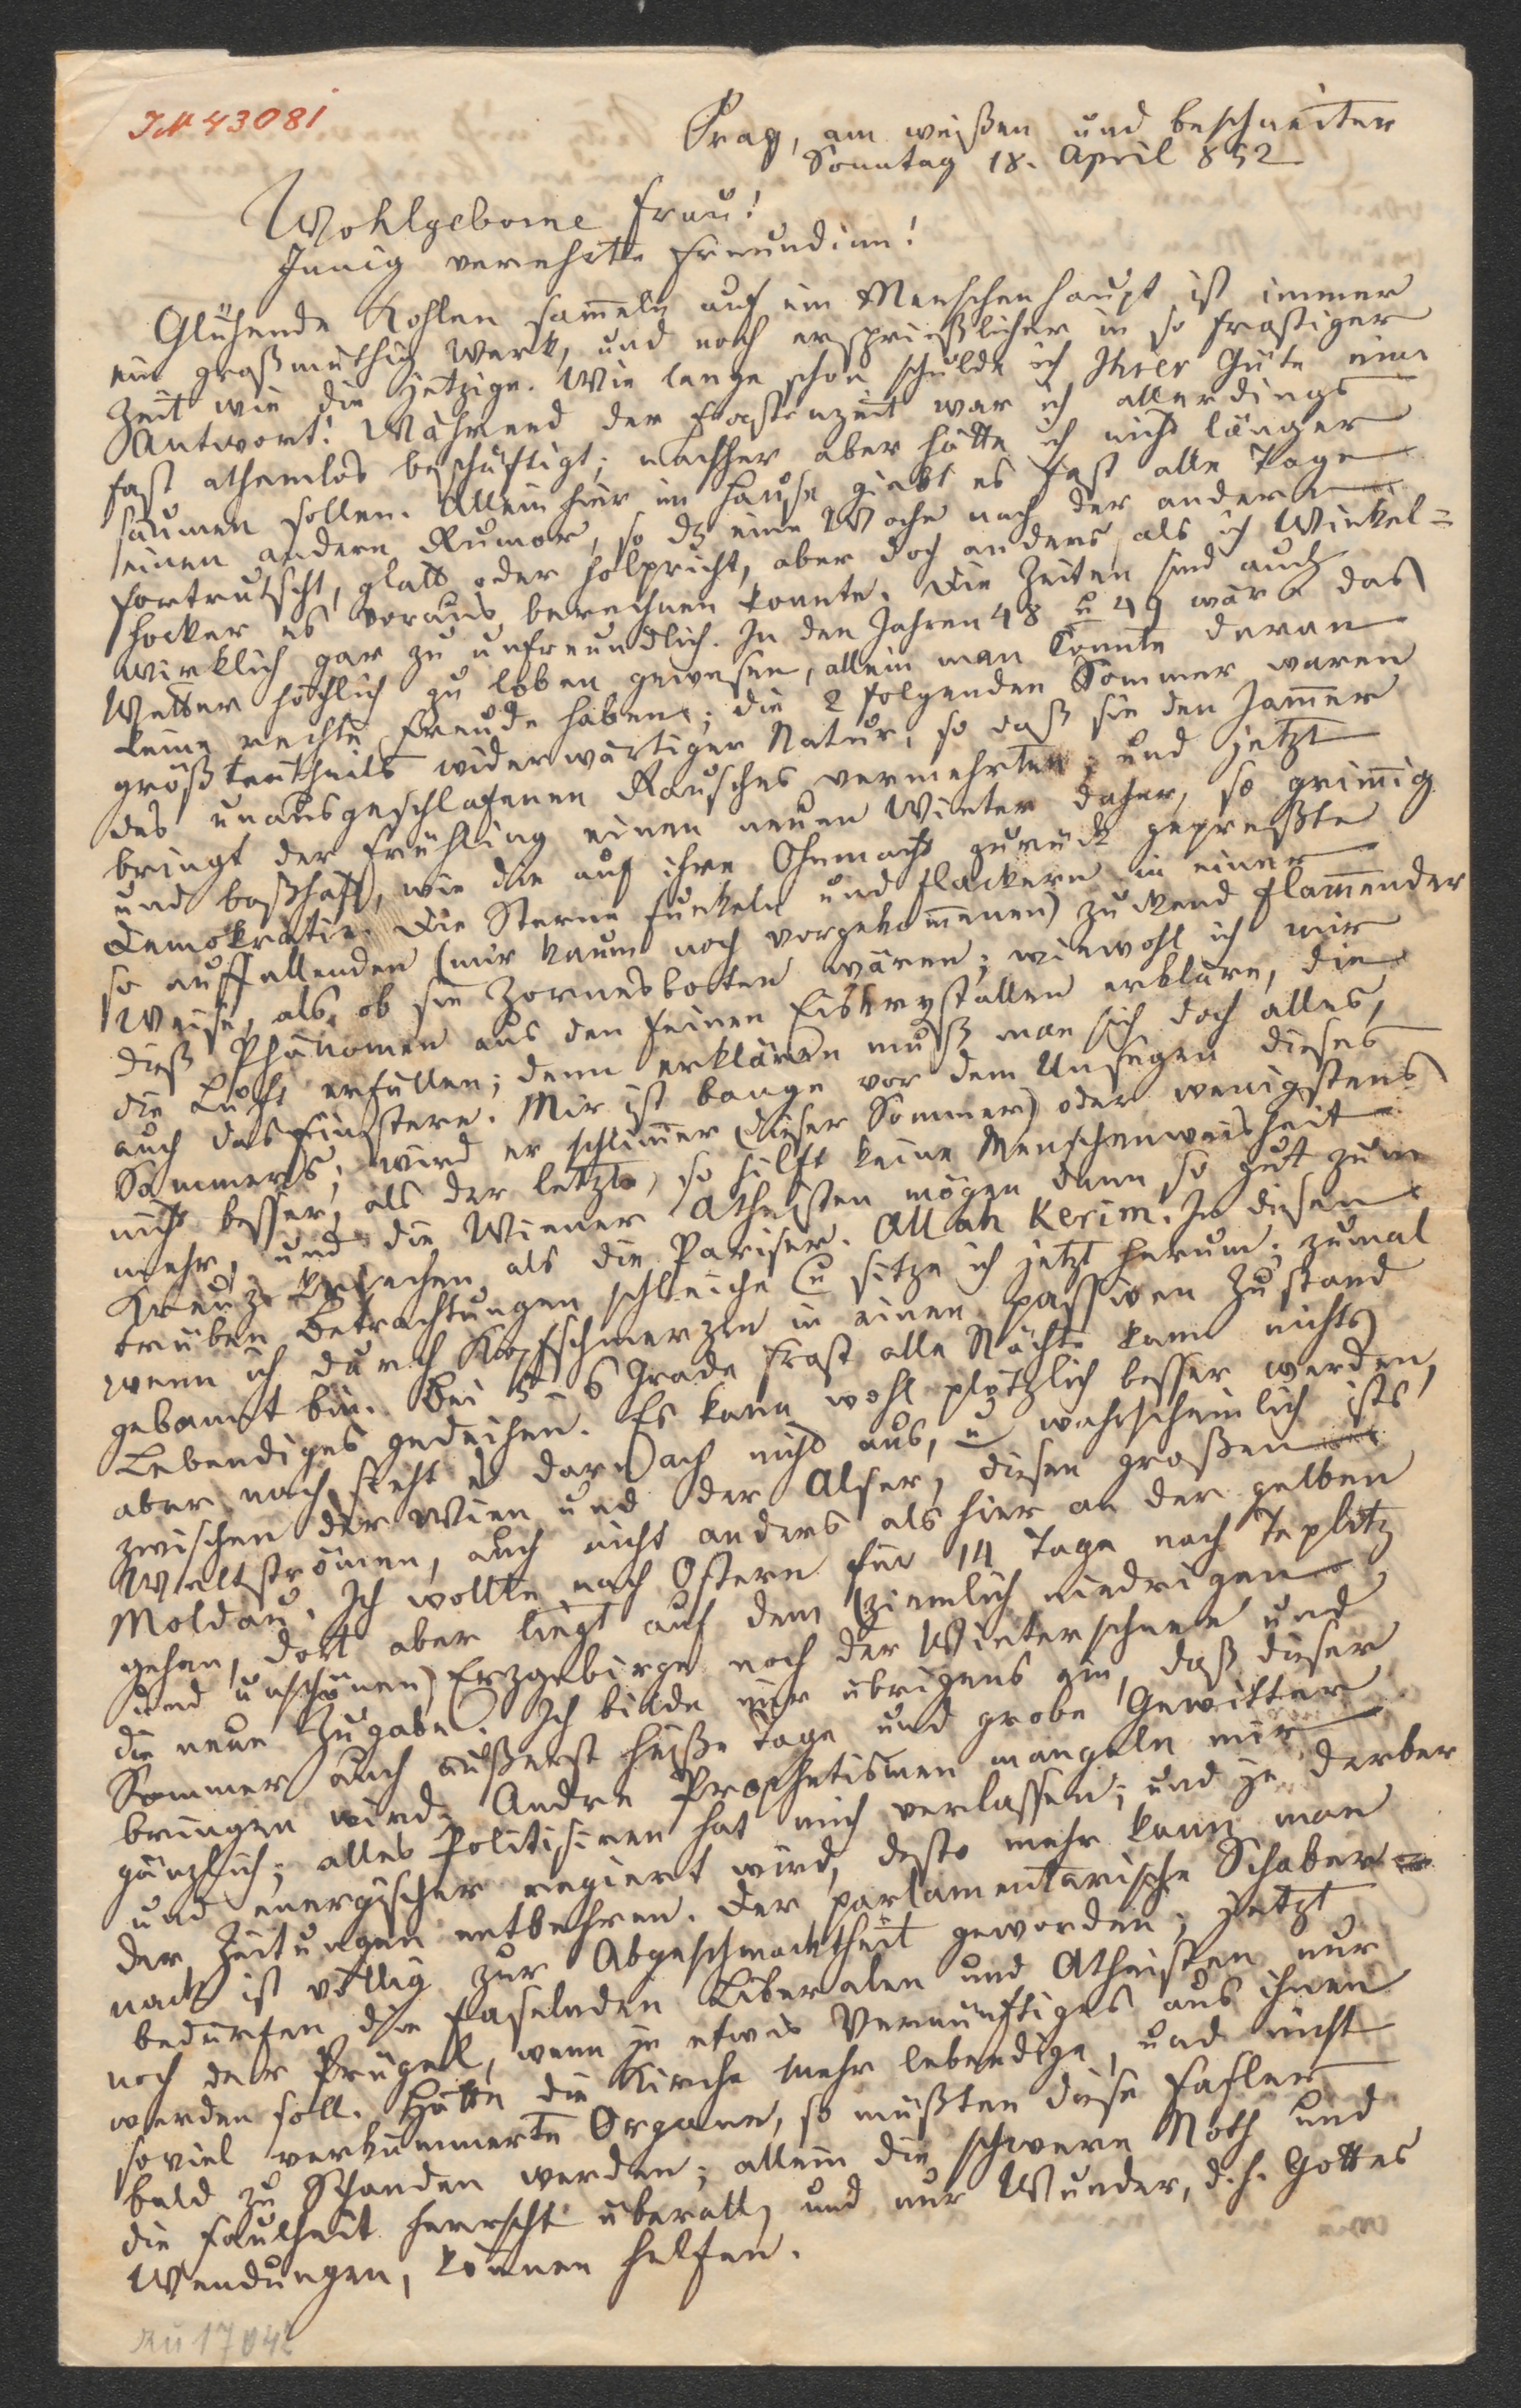 IN 43081
Prag, am weißen und beschneiten
Sonntag 18. April 852
Wohlgeborne Frau!
Innig verehrte Freundinn!
Glühende Kohlen sam̄eln auf ein Menschenhaupt ist immer
ein großmüthig Werk, und noch ersprießlicher in so frostiger
Zeit wie die jetzige. Wie lange schon schulde ich Ihrer Güte eine
Antwort! Während der Fastenzeit war ich allerdings
fast athemlos beschäftigt; nachher aber hätte ich nicht länger
säumen sollen. Allein hier im Hause giebt es fast alle Tage
einen andern Rumor, so dß eine Woche nach der andern
fortrutscht, glatt oder holpricht, aber doch anders als ich Winkel=
hocker es voraus berechnen konnte. Die Zeiten sind auch
wirklich gar zu unfreundlich. In den Jahren 48 u 49 wäre das
Wetter höchlich zu loben gewesen, allein man konnte daran
keine rechte Freude haben; die 2 folgenden Sommer waren
größtentheils widerwärtiger Natur, so daß sie den Jam̄er
des unausgeschlafenen Rausches vermehrten; und jetzt
bringt der Frühling einen neuen Winter daher, so grim̄ig
und boshaft, wie die auf ihre Ohnmacht zurück gepreßte
Demokratie. Die Sterne funkeln und flackern in einer
so auffallenden (mir kaum noch vorgekom̄enen) zuckend flam̄ender
Weise, als ob sie Zornesboten wären; wiewohl ich mir
dieß Phänomen aus den feinen Eiskrystallen erkläre, die
die Luft erfüllen; denn erklären muß man sich doch alles,
auch das Finstere. Mir ist bange vor dem Unsegen dieses
Sommers; wird er schlim̄er (dieser Sommer) oder wenigstens
nicht besser, als der letzte, so hilft keine Menschenweisheit
mehr, und die Wiener Atheisten mögen dann so gut zum
Kreuze kriechen als die Pariser. Allah Kerim. In diesen
trüben Betrachtungen schleiche u sitze ich jetzt herum; zumal
wenn ich durch Kopfschmerzen in einen passiven Zustand
gebannt bin. Bei 5 – 6 Grade Frost alle Nächte kann nichts
Lebendiges gedeihen. Es kann wohl plötzlich besser werden,
aber noch sieht es darnach nicht aus, u wahrscheinlich ists
zwischen der Wien und der Alser, diesen großen
Weltströmen, auch nicht anders als hier an der gelben
Moldau. Ich wollte nach Ostern für 14 Tage nach Teplitz
gehen, dort aber liegt auf dem (ziemlich niedrigen
und unschönen) Erzgebirge noch der Winterschnee und
die neue Zugabe. Ich bilde mir übrigens ein, daß dieser
Sommer auch äußerst heiße Tage und grobe Gewitter
bringen wird. Andre Prophetismen mangeln mir
gänzlich; alles Politisiren hat mich verlassen; und je derber
und energischer regiert wird, desto mehr kann man
der Zeitungen entbehren. Der parlamentarische Schaber=
nack ist völlig zur Abgeschmacktheit geworden; jetzt
bedürfen die faselnden Liberalen und Atheisten nur
noch der Prügel, wenn je etwas Vernünftiges aus ihnen
werden soll. Hätte die Kirche mehr lebendige, und nicht
soviel verkümmerte Organe, so müßten diese Fasler
bald zu Schanden werden; allein die schwere Noth und
die Faulheit herrscht überall, und nur Wunder, d.h. Gottes
Wendungen, können helfen.